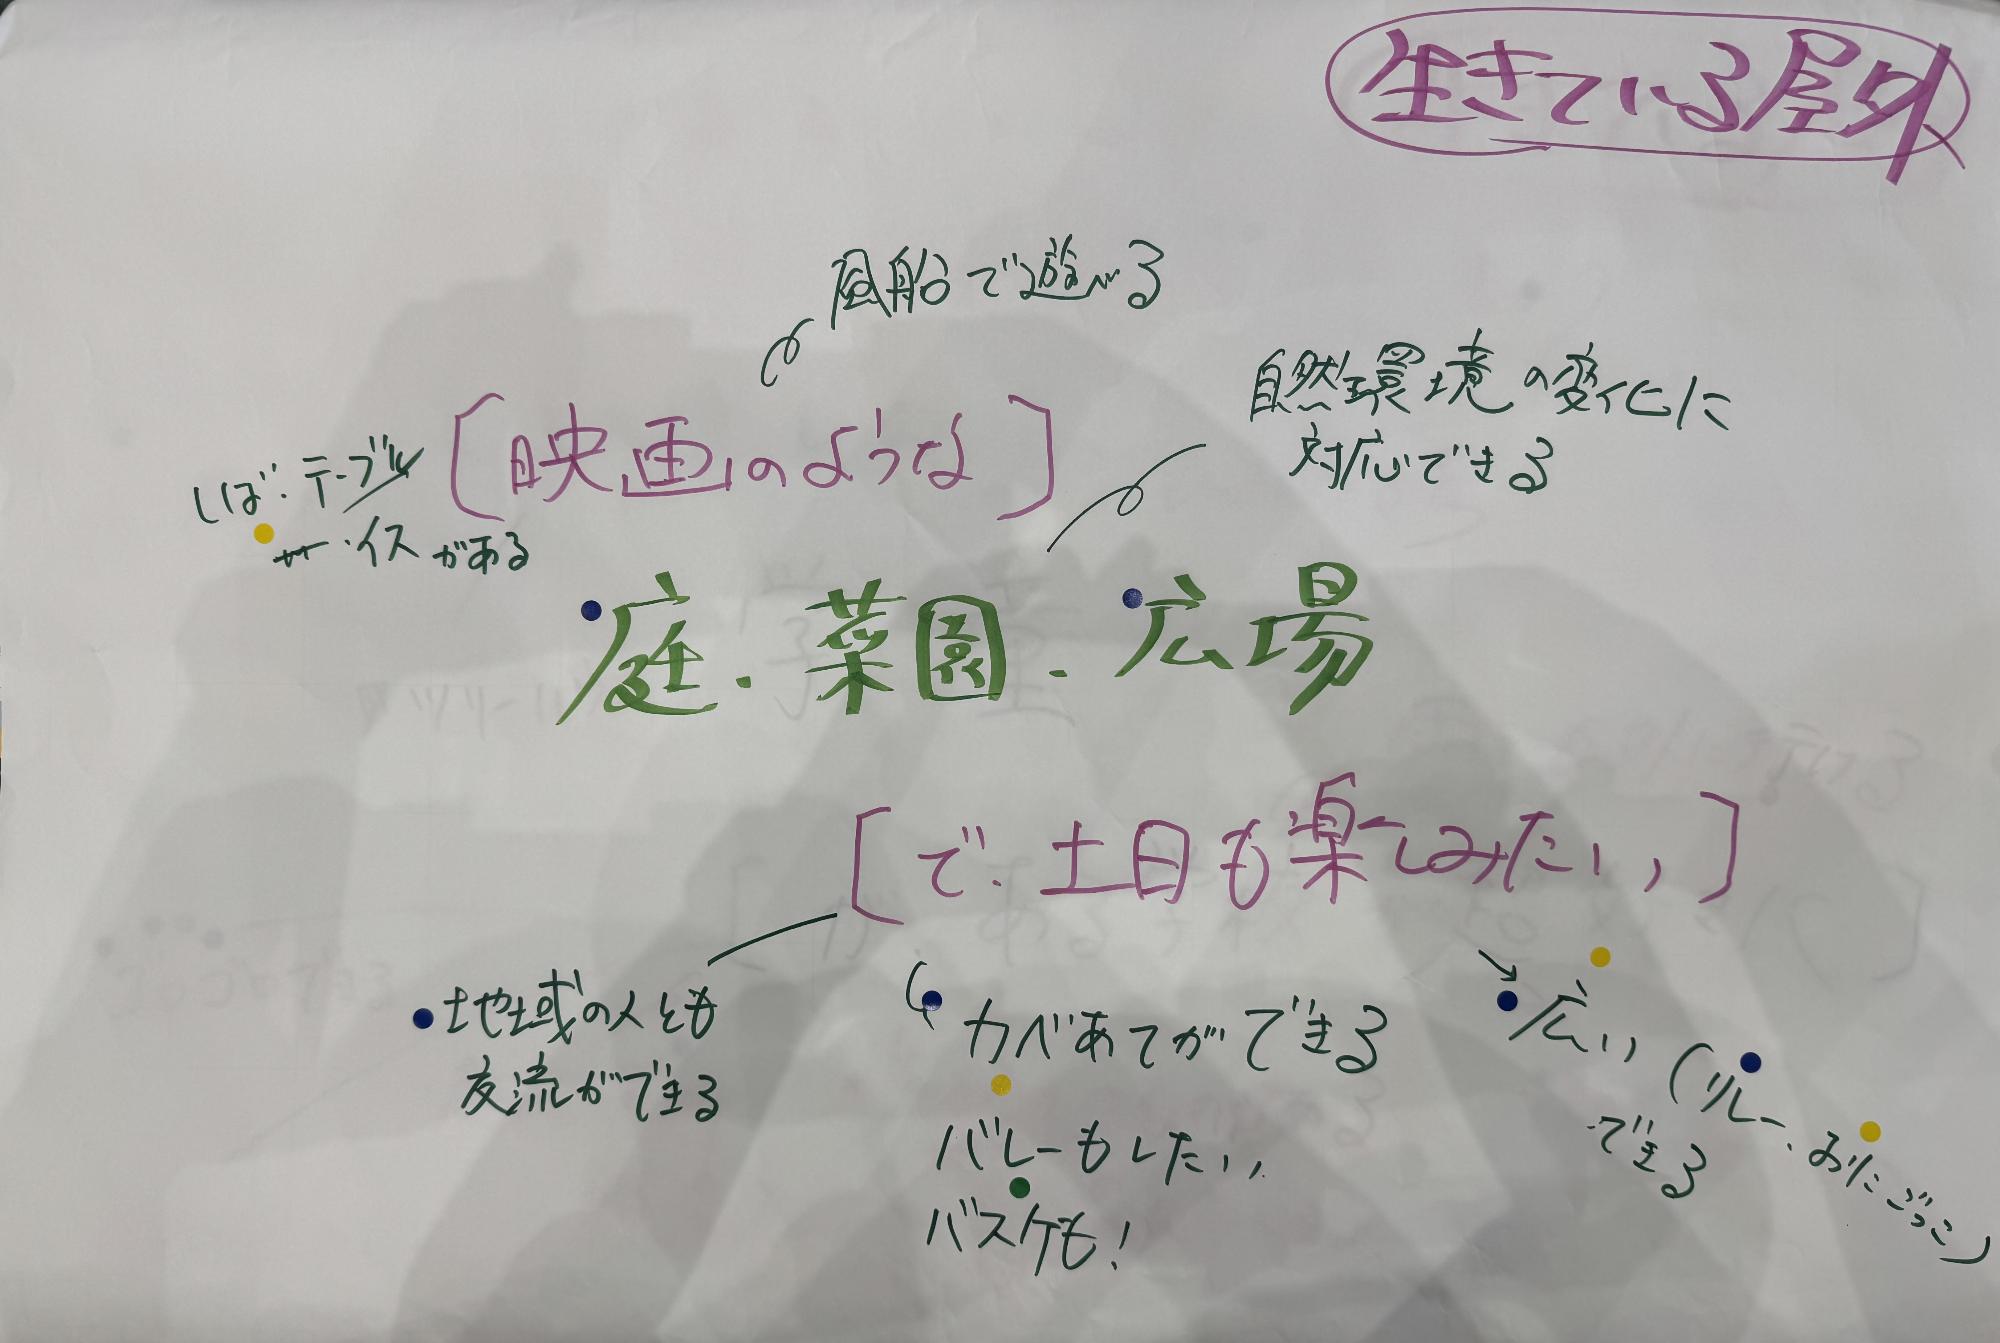 生きている屋外
風船で遊べる
自然環境の変化に
対応できる
[映画のような]
しば・テーブル
・イスがある
庭・菜園・広場
[で、土日も楽しみたい]
地域の人とも
交流ができる
カベあてができる
バレーもしたい
バスケも!
広い(リレー、おにごっこ)
できる